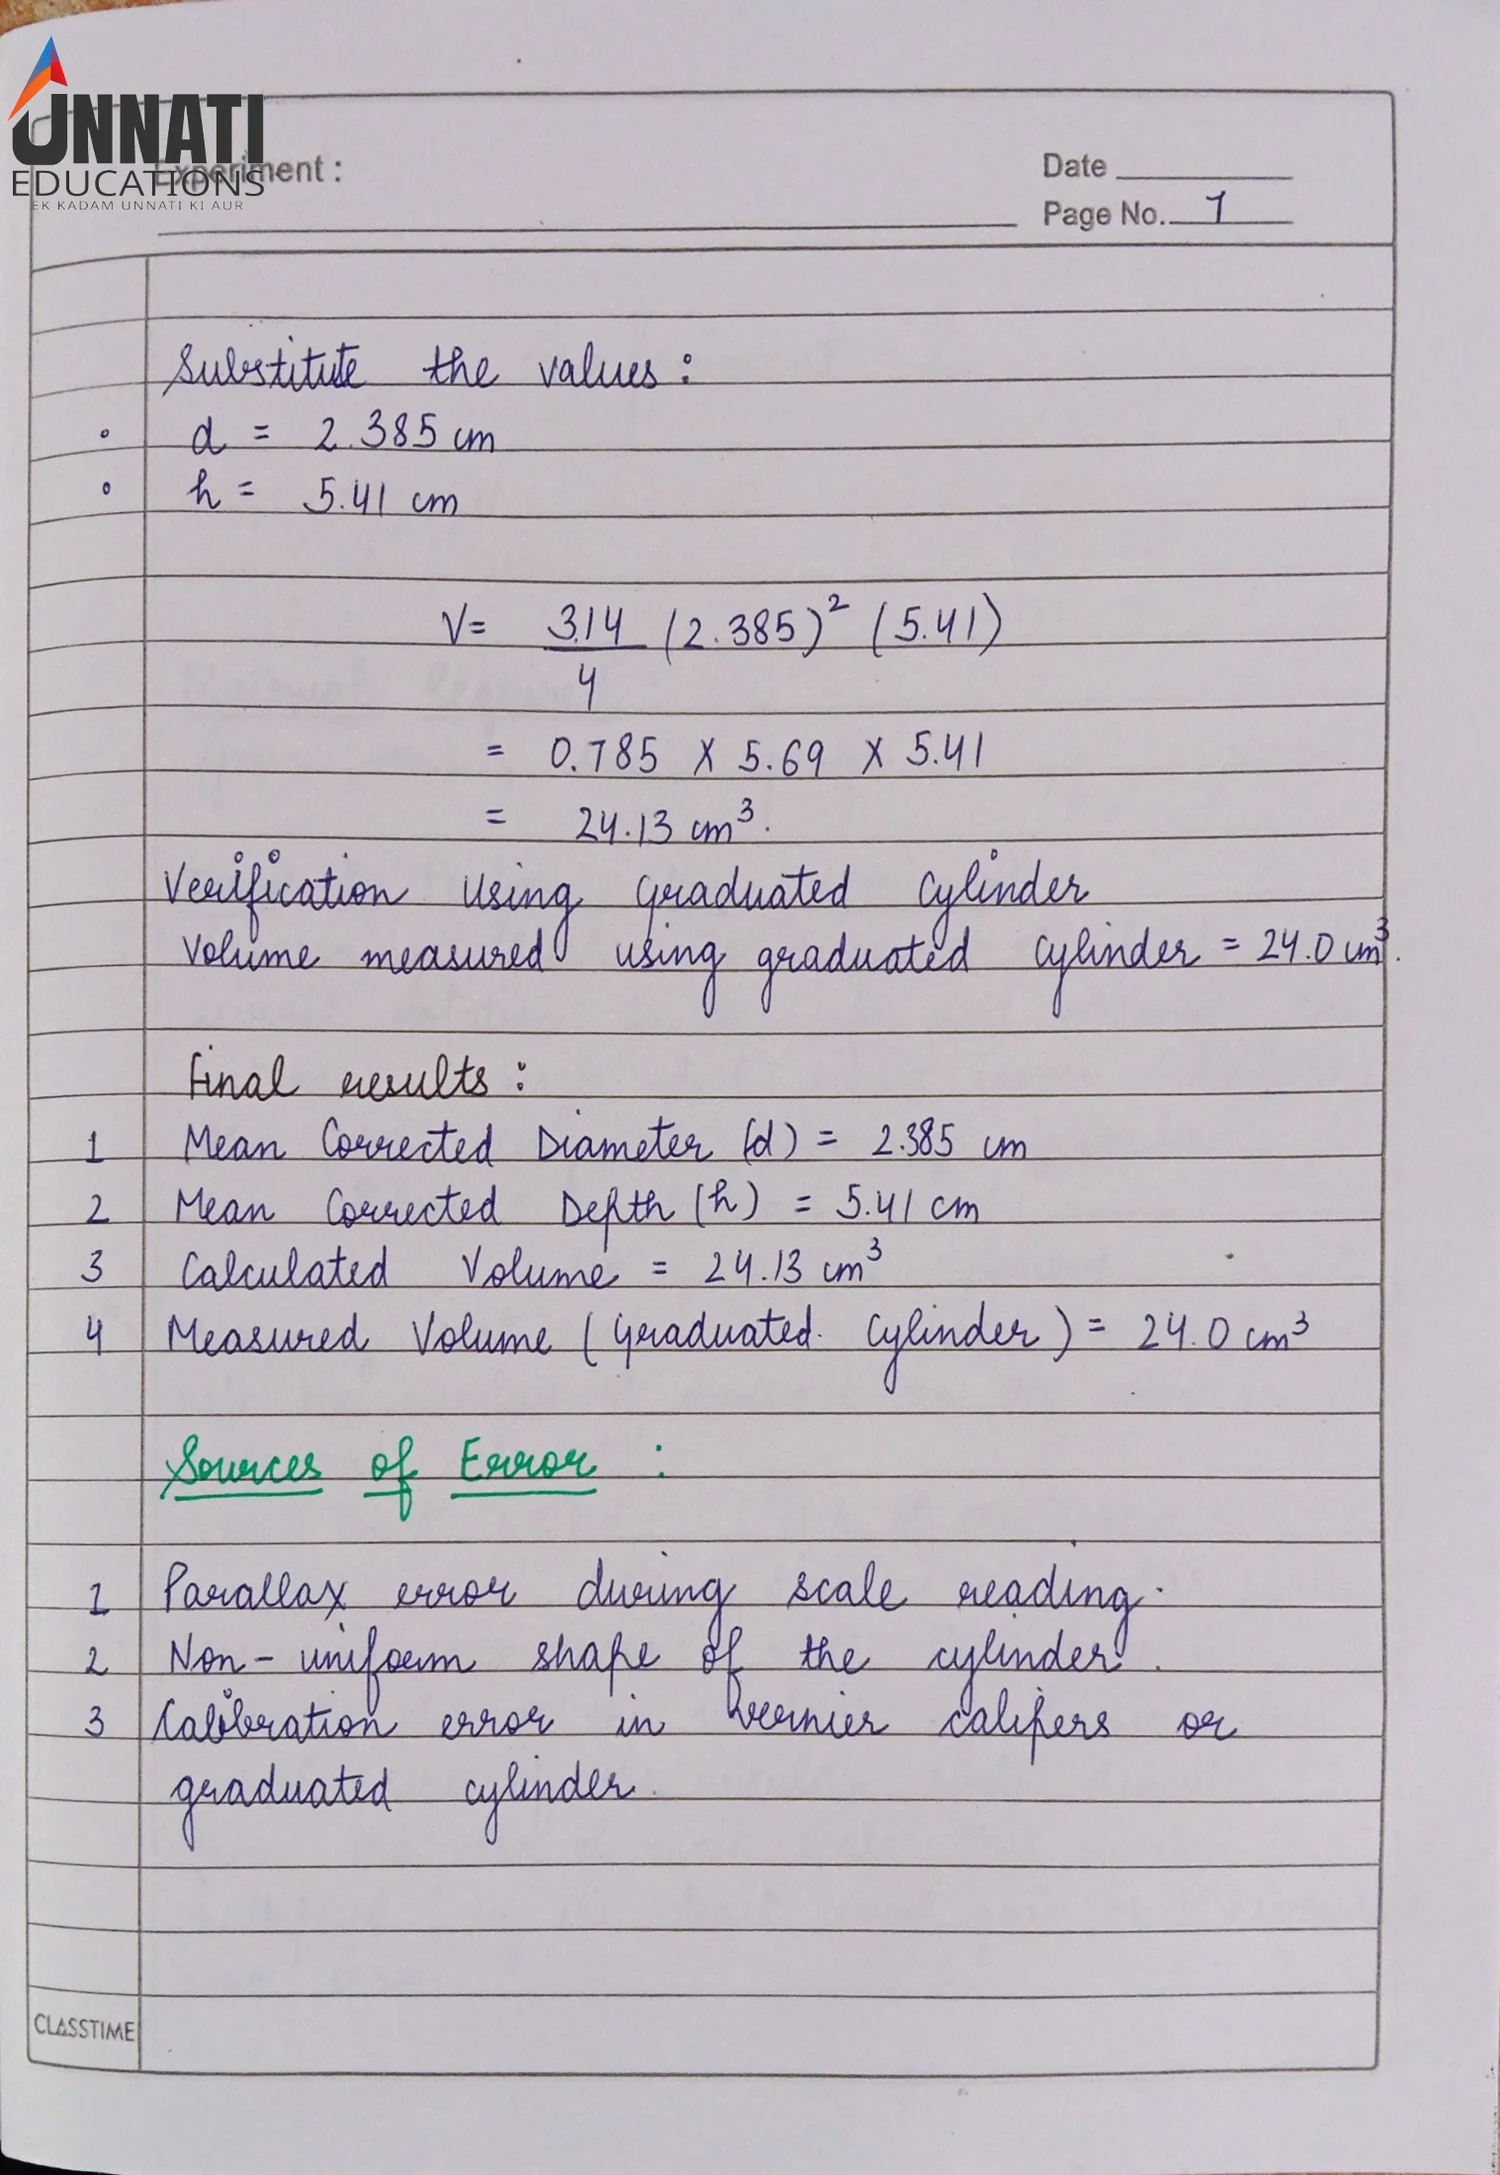 UNNATI
EDUCATIONS
EK KADAM UNNATI KI AUR
Experiment :
Date
Page No. 7
Substitute the values :
d = 2.385 cm
h = 5.41 cm
V= 3.14/4 (2.385)² (5.41)
= 0.785 X 5.69 X 5.41
= 24.13 cm³.
Verification using graduated cylinder
Volume measured using graduated cylinder = 24.0 cm³.
Final results :
1 Mean Corrected Diameter (d) = 2.385 cm
2 Mean Corrected Depth (h) = 5.41 cm
3 Calculated Volume = 24.13 cm³
4 Measured Volume (Graduated. Cylinder) = 24.0 cm³
Sources of Error :
1 Parallax error during scale reading.
2 Non-uniform shape of the cylinder.
3 Calibration error in Vernier calipers or
graduated cylinder.
CLASSTIME